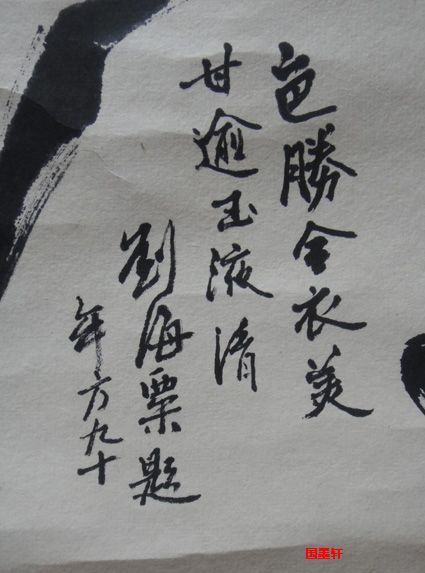 色勝金衣美
甘逾玉液清
劉海粟題
年方九十
国墨轩